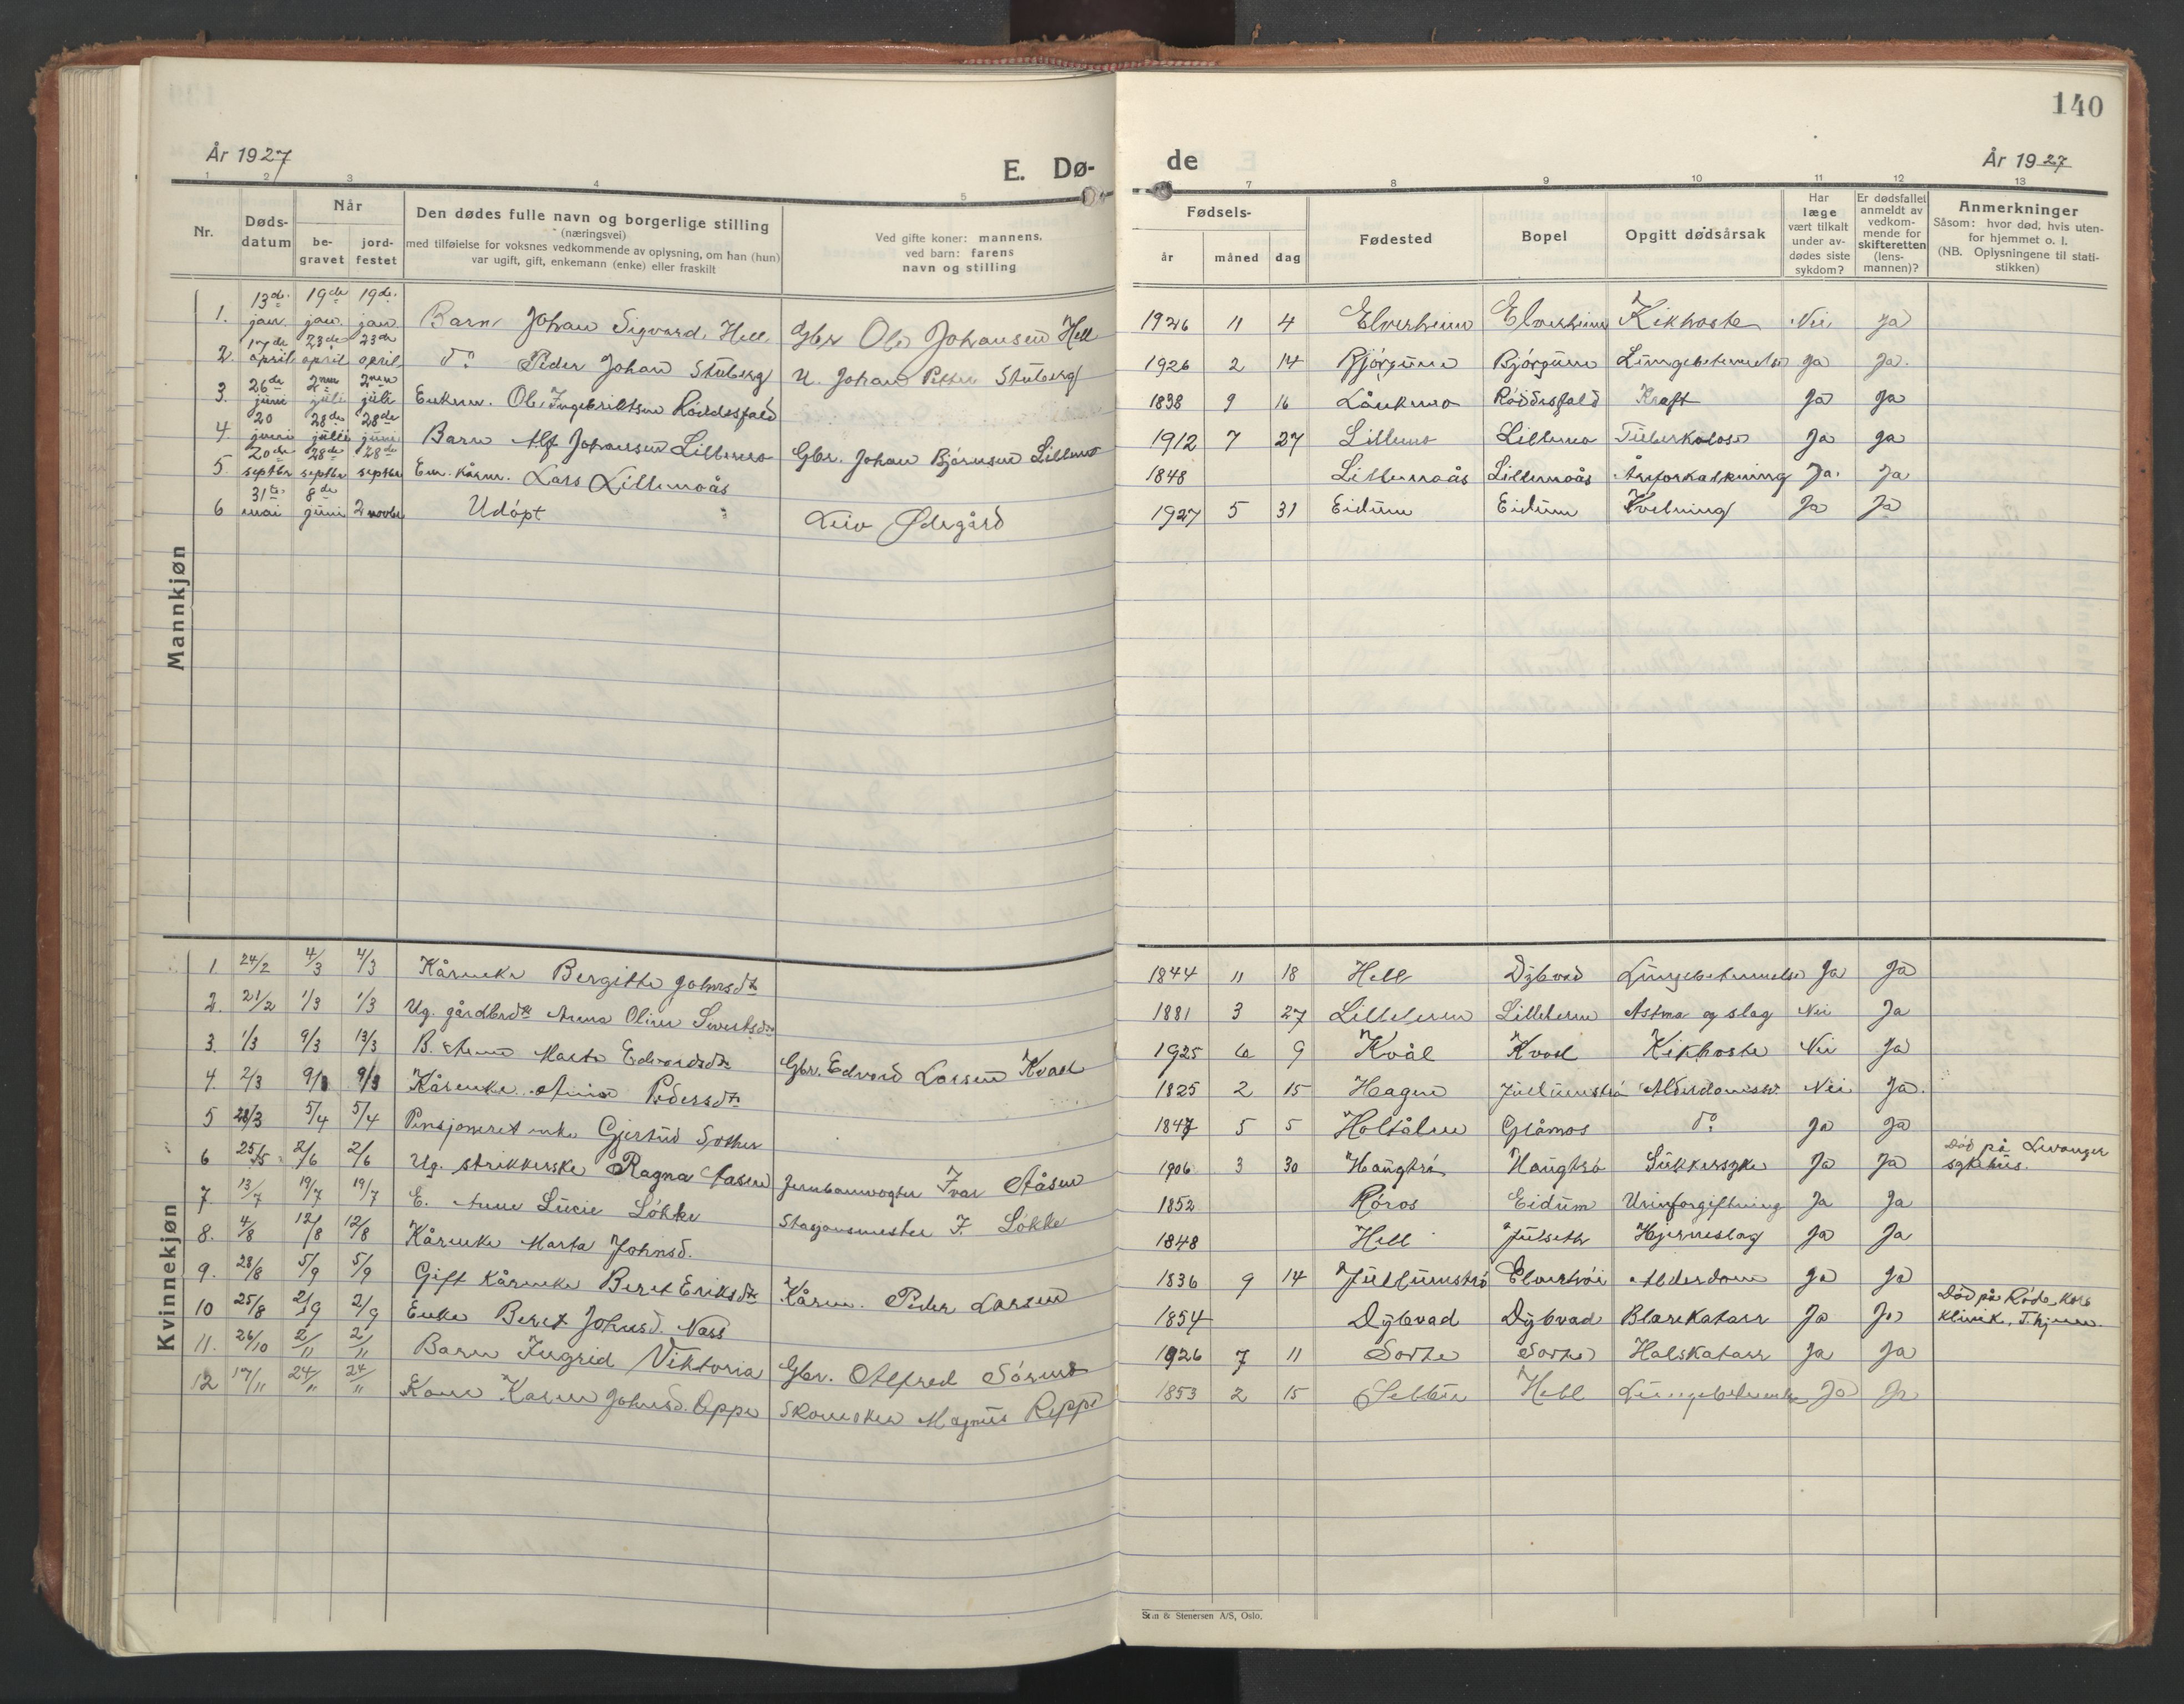 140
År 1927
E. Dø-
de
År 1927
1 2 3 4 5
6 7 8 9 10 11 12 13
Nr.
Døds-
datum
Når
be-
gravet
jord-
festet
Den dødes fulle navn og borgerlige stilling
(næringsvei)
med tilføielse for voksnes vedkommende av oplysning, om han (hun)
var ugift, gift, enkemann (enke) eller fraskilt
Ved gifte koner: mannens,
ved barn: farens
navn og stilling
Fødsels-
år
måned
dag
Fødested
Bopel
Opgitt dødsårsak
Har
læge
vært tilkalt
under av-
dødes siste
sykdom?
Er dødsfallet
anmeldt av
vedkom-
mende for
skifteretten
(lens-
mannen)?
Anmerkninger
Såsom: hvor død, hvis uten-
for hjemmet o. l.
(NB. Oplysningene til stati-
stikken)
Mannkjøn
1. 13de jan. 19de jan. 19de jan. Barn Johan Sigvard Hell Gbr Ole Johansen Hell 1926 11 4 Elverheim Elverheim Kikhoste Nei Ja
2. 17de april 23de april 23de april do Peder Johan Stuberg U. Johan Petter Stuberg 1926 2 14 Bjórgum Bjórgum Lungebetennelse Ja Ja.
3. 26de juni 2nen juli 2nen juli Enkem. Ole Ingebriktsen Róddesfald 1838 9 16 Lånkmo Róddesfald Kræft Ja Ja
4. 20 juni 28de 28de juni Barn Alf Johansen Lillemo Gbr. Johan Bjórnsen Lillemo 1912 7 27 Lillemo Lillemo Tuberkulose Ja Ja
5. 20de septbr 28de septbr 28de septbr Em. kårm. Lars Lillemoås 1848 Lillemoås Lillemoås Åreforkalkning Ja. Ja
6 31te mai 8de juni 2 novbr Udópt Leiv Ødegård 1927 5 31 Eidum Eidum Kvelning Ja Ja
Kvinnekjøn
1 24/2 4/3 4/3 Kårenke Bergitte Johnsdtr 1844 11 18 Hell Dybvad Lungebetennelse Ja Ja
2. 21/2 1/3 1/3 Ug. gårdbrdtr Anna Oline Sivertsdtr 1881 3 27 Nei Ja Astma og slag
3. 1/3 9/3 13/3 B. Marta Edvardsdtr Gbr. Edvard Larsen Kvål 1925 6 9 Kvål Kvål Kikhoste Nei Ja
4. 2/3 9/3 9/3 Kårenke Pedersdtr 1825 2 15 Hagen Alderdomssv. Nei Ja.
5 28/3 5/4 5/4 Pensjoneret enke Gjertrud 1847 5 5 Holtålen Glåmos do Ja Ja
6 25/5 2/6 2/6 Ug. strikkerske Ragna Aasen Jernbanevogter Ivar Åsen 1906 3 30 Haugtró Haugtró Sukkersyke Ja Ja Død på Levanger
sykehus.
7. 13/7 19/7 19/7 E. Anne Lucie Lókke Stasjonsmester F. Lókke 1852 Róros Eidum Urinforgiftning Ja Ja
8. 4/8 12/8 12/8 Kårenke Marta Johnsd. 1848 Hell Julseth Hjerneslag Ja Ja
9. 28/8 5/9 5/9 Gift kårenke Beret Eriksdtr Kårm. Peder Larsen 1836 9 14 Alderdom Ja Ja
10 25/8 2/9 2/9 Enke Beret Johnsd. Næss 1854 Dybvad Dybvad Blærekatarr Ja Ja Død på Róde Kors
Klinik, T.hjem.
11. 26/10 2/11 2/11 Barn Ingrid Viktoria Gbr. Alfred 1926 7 11 Halskatarr Ja Ja
12 17/11 24/11 24/11 Kone Karen Johnsd. Reppe Skomaker Magnus Reppe 1853 2 15 Selbu Hell Lungebetennelse Ja Ja
Sten & Stenersen A/S, Oslo.